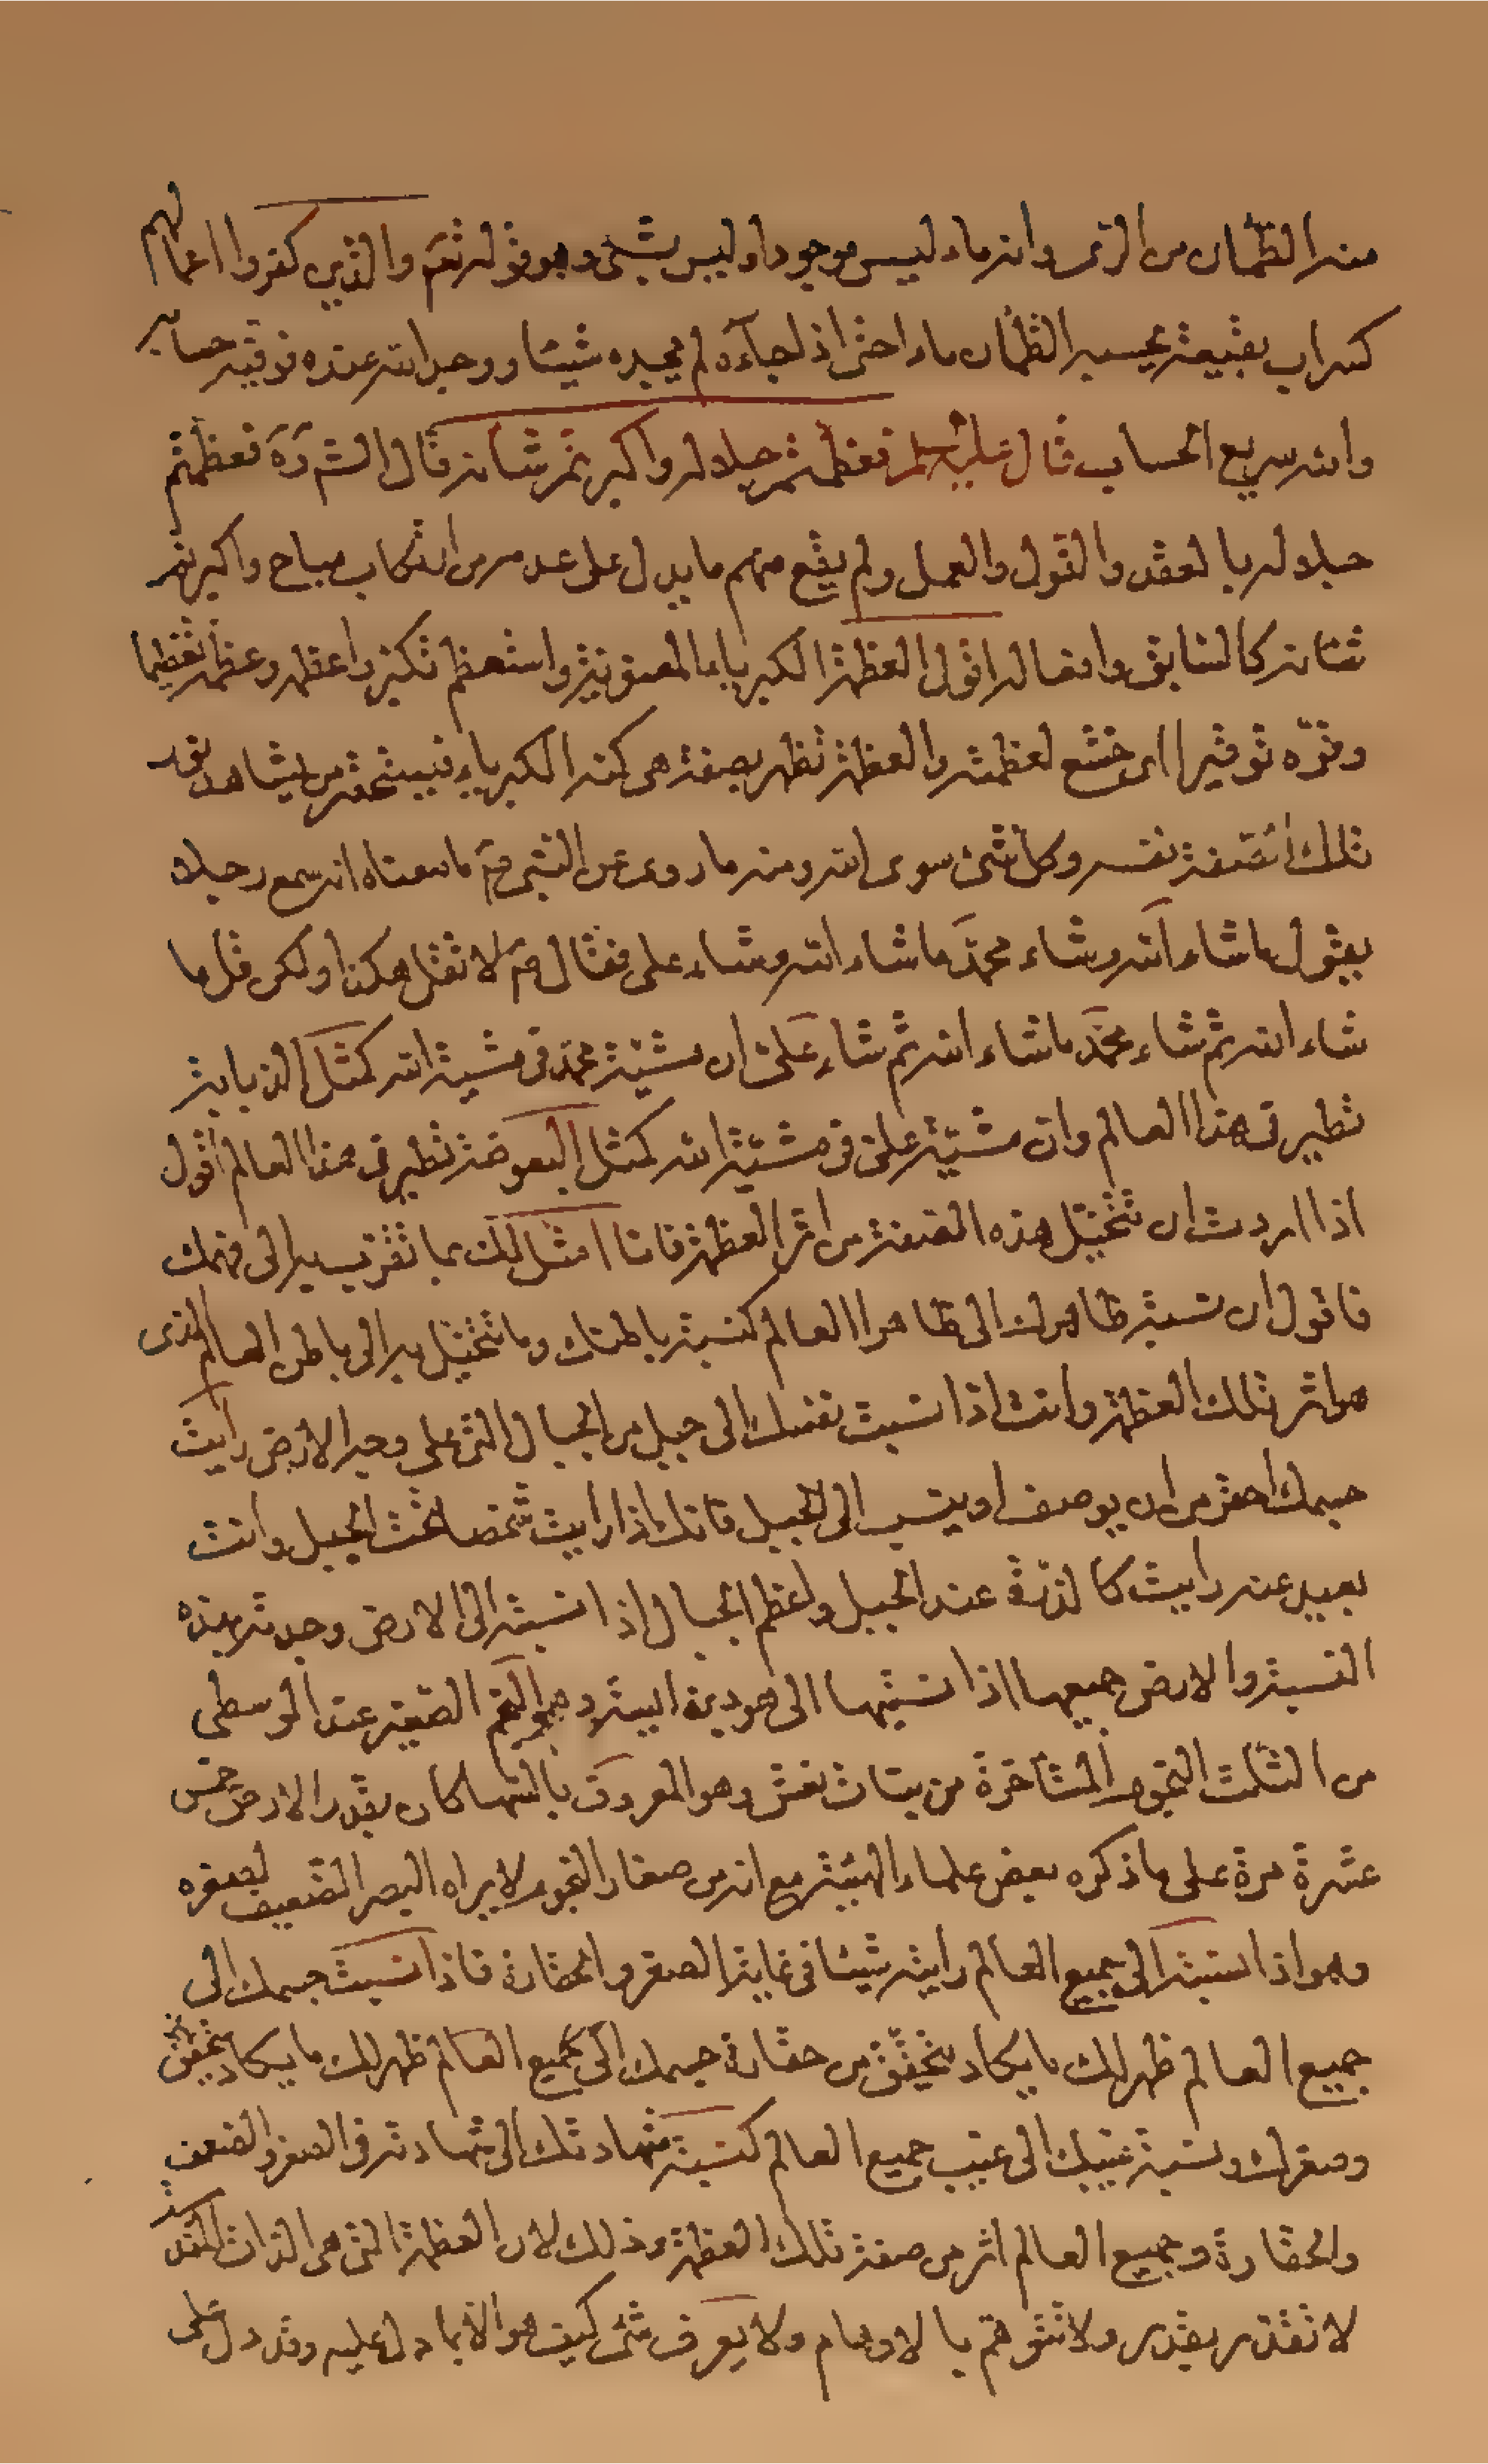 منه الظمان من الرى وانه ماء ليس موجودا وليس بشئ وهو قوله تعم والذين كفروا اعمالهم
كسراب بقيعة يحسبه الظمان ماء احتى اذا جاءه لم يجده شيئا ووجد الله عنده فوفيه حسابه
والله سريع الحساب قال عليه السلم فعظمتم جلاله واكبرتم شانه قال الش ره فعظمتم
جلاله بالعقد والقول والعمل ولم يقع منهم ما يدل على عدمه من ارتكاب مباح واكبرتم
شانه كالسابق وافعاله اقول العظمة الكبرياء المعنوية واستعظم تكبر واعظمه وعظمه تعظيما
وقره توقيرا اى خشع لعظمته والعظمة تظهر بصفة هى كنه الكبرياء فيستحقر من يشاهد نور
تلك الصفة نفسه وكل شئ سوى الله ومنه ما روى عن النبى ص ما معناه انه سمع رجلا
يقول ما شاء الله وشاء محمد ما شاء الله وشاء على فقال ص لا تقل هكذا ولكن قل ما
شاء الله ثم شاء محمد ما شاء الله ثم شاء على ان مشيئة محمد فى مشية الله كمثل الذبابة
تطير فى هذا العالم وان مشية على فى مشية الله كمثل البعوضة تطير فى هذا العالم اقول
اذا اردت ان تتخيل هذه الصفة من اثر العظمة فانا امثل لك بما تقرب به الى فهمك
فاقول ان نسبة ظاهرك الى ظاهر االعالم كنسبة باطنك وما تتخيل به الى باطن العالم الذى
هو اثر تلك العظمة وانت اذا نسبت نفسك الى جبل من الجبال التى على وجه الارض رايت
جسمك احقر من ان يوصف او ينسب الى الجبل فانك اذا رايت شخصا تحت الجبل وانت
بعيد عنه رايت كالذرة عند الجبل واعظم الجبال اذا نسبته الى الارض وجدته بهذه
النسبة والارض جميعها اذا نسبتها الى هو دية ابيثه وهو النجم الصغير عند الوسطى
من الثلث النجوم المتأخرة من بنات نعش وهو المعروف بالسها كان بقدر الارض خمس
عشرة مرة على ما ذكره بعض علماء الهيئة مع انه من صغار النجوم لا يراه البصر الضعيف لصغره
وهو اذا نسبته الى جميع العالم رايته شيئا فى غاية الصغر والحقارة فاذا نسبت جسمك الى
جميع العالم ظهر لك ما يكاد يتحقق من حقارة جسمك الى جميع العالم ظهر لك ما يكاد يتحقق
وصغرك ونسبة غيبك الى غيب جميع العالم كنسبة شهادتك الى شهادته فى الصغر والضعف
والحقارة وجميع العالم اثر من صفة تلك العظمة وذلك لان العظمة التى هى الذات المقدسة
لا تقدر بقدر ولا تتوهم بالاوهام ولا يعرف شئ كيف هو الا بما دل عليه وقد دل على